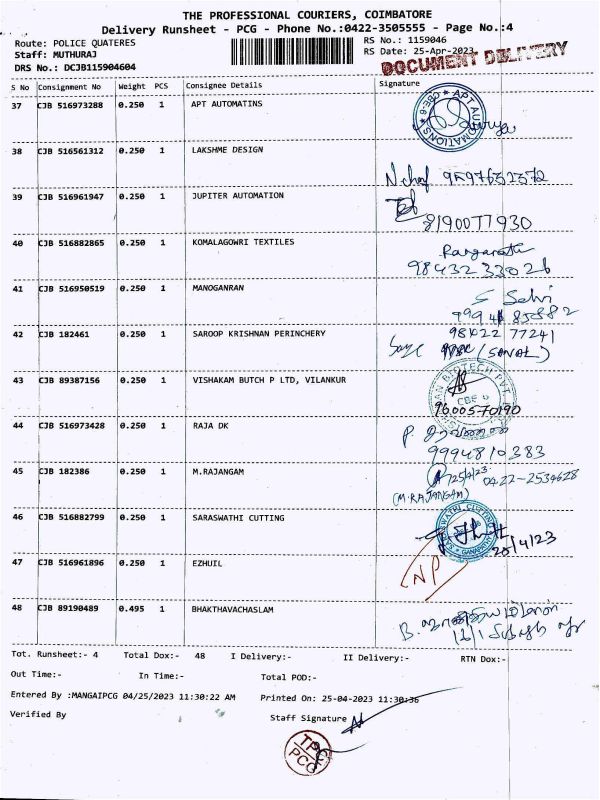 THE PROFESSIONAL COURIERS, COIMBATORE
Delivery Runsheet - PCG - Phone No.:0422-3505555 - Page No.:4
Route: POLICE QUATERES RS No.: 1159046
Staff: MUTHURAJ RS Date: 25-Apr-2023
DRS No.: DCJB115904604
DOCUMENT DELIVERY
S No Consignment No Weight PCS Consignee Details Signature
37 CJB 516973288 0.250 1 APT AUTOMATINS
APT AUTOMATIONS CBE-6
38 CJB 516561312 0.250 1 LAKSHME DESIGN
39 CJB 516961947 0.250 1 JUPITER AUTOMATION
8190077930
40 CJB 516882865 0.250 1 KOMALAGOWRI TEXTILES
98432 33026
41 CJB 516950519 0.250 1 MANOGANRAN
S Selvi
42 CJB 182461 0.250 1 SAROOP KRISHNAN PERINCHERY
98422 77241
(SANAL)
43 CJB 89387156 0.250 1 VISHAKAM BUTCH P LTD, VILANKUR
9600570190
44 CJB 516973428 0.250 1 RAJA DK
9994810383
45 CJB 182386 0.250 1 M.RAJANGAM
25/4/23 0422-2534628
(M.RAJANGAM)
46 CJB 516882799 0.250 1 SARASWATHI CUTTING
47 CJB 516961896 0.250 1 EZHUIL
NP
48 CJB 89190489 0.495 1 BHAKTHAVACHASLAM
Tot. Runsheet:- 4 Total Dox:- 48 I Delivery:- II Delivery:- RTN Dox:-
Out Time:- In Time:- Total POD:-
Entered By :MANGAIPCG 04/25/2023 11:30:22 AM Printed On: 25-04-2023 11:30:36
Verified By Staff Signature
TPC
PCG